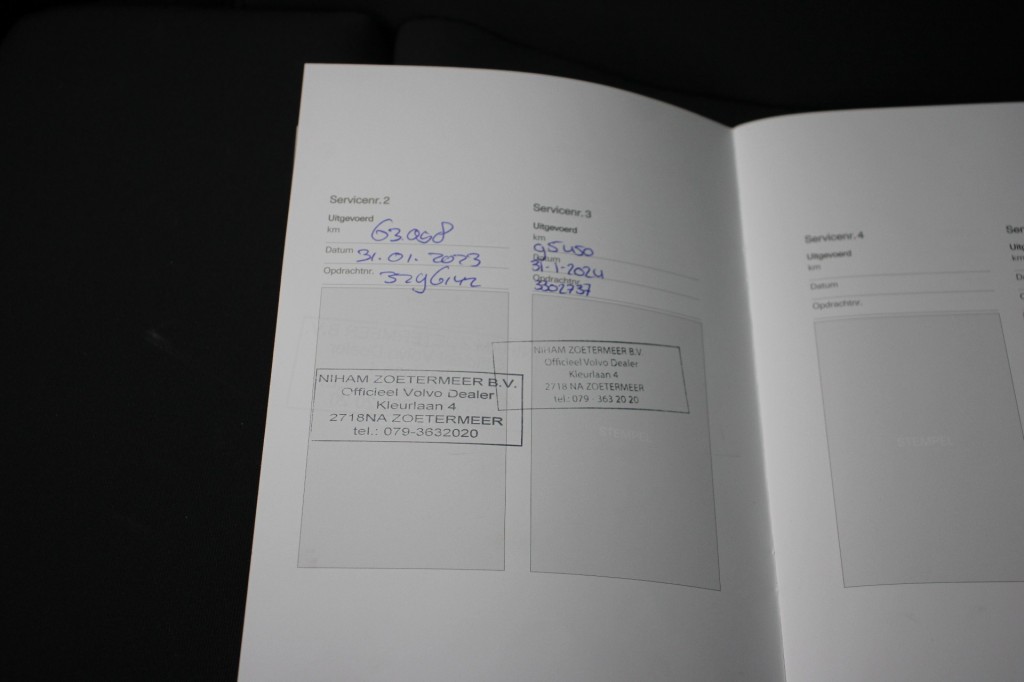 Servicenr. 2
Uitgevoerd
km 63.098
Datum 31.01.2023
Opdrachtnr. 3296142
NIHAM ZOETERMEER B.V.
Officieel Volvo Dealer
Kleurlaan 4
2718NA ZOETERMEER
tel.: 079-3632020
Servicenr. 3
Uitgevoerd
km 95450
Datum 31-1-2024
Opdrachtnr. 3302737
NIHAM ZOETERMEER B.V.
Officieel Volvo Dealer
Kleurlaan 4
2718 NA ZOETERMEER
tel.: 079 - 363 20 20
STEMPEL
Servicenr. 4
Uitgevoerd
km
Datum
Opdrachtnr.
STEMPEL